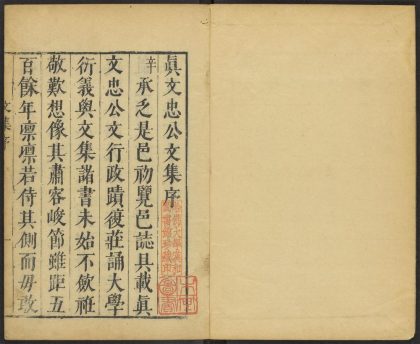 真文忠公文集序
辛承乏是邑初覽邑誌具載眞
文忠公文行政蹟復莊誦大學
衍義與文集諸書未始不歛衽
敬歎想像其肅容峻節雖距五
百餘年凛凛若侍其側而毋敢
文集序